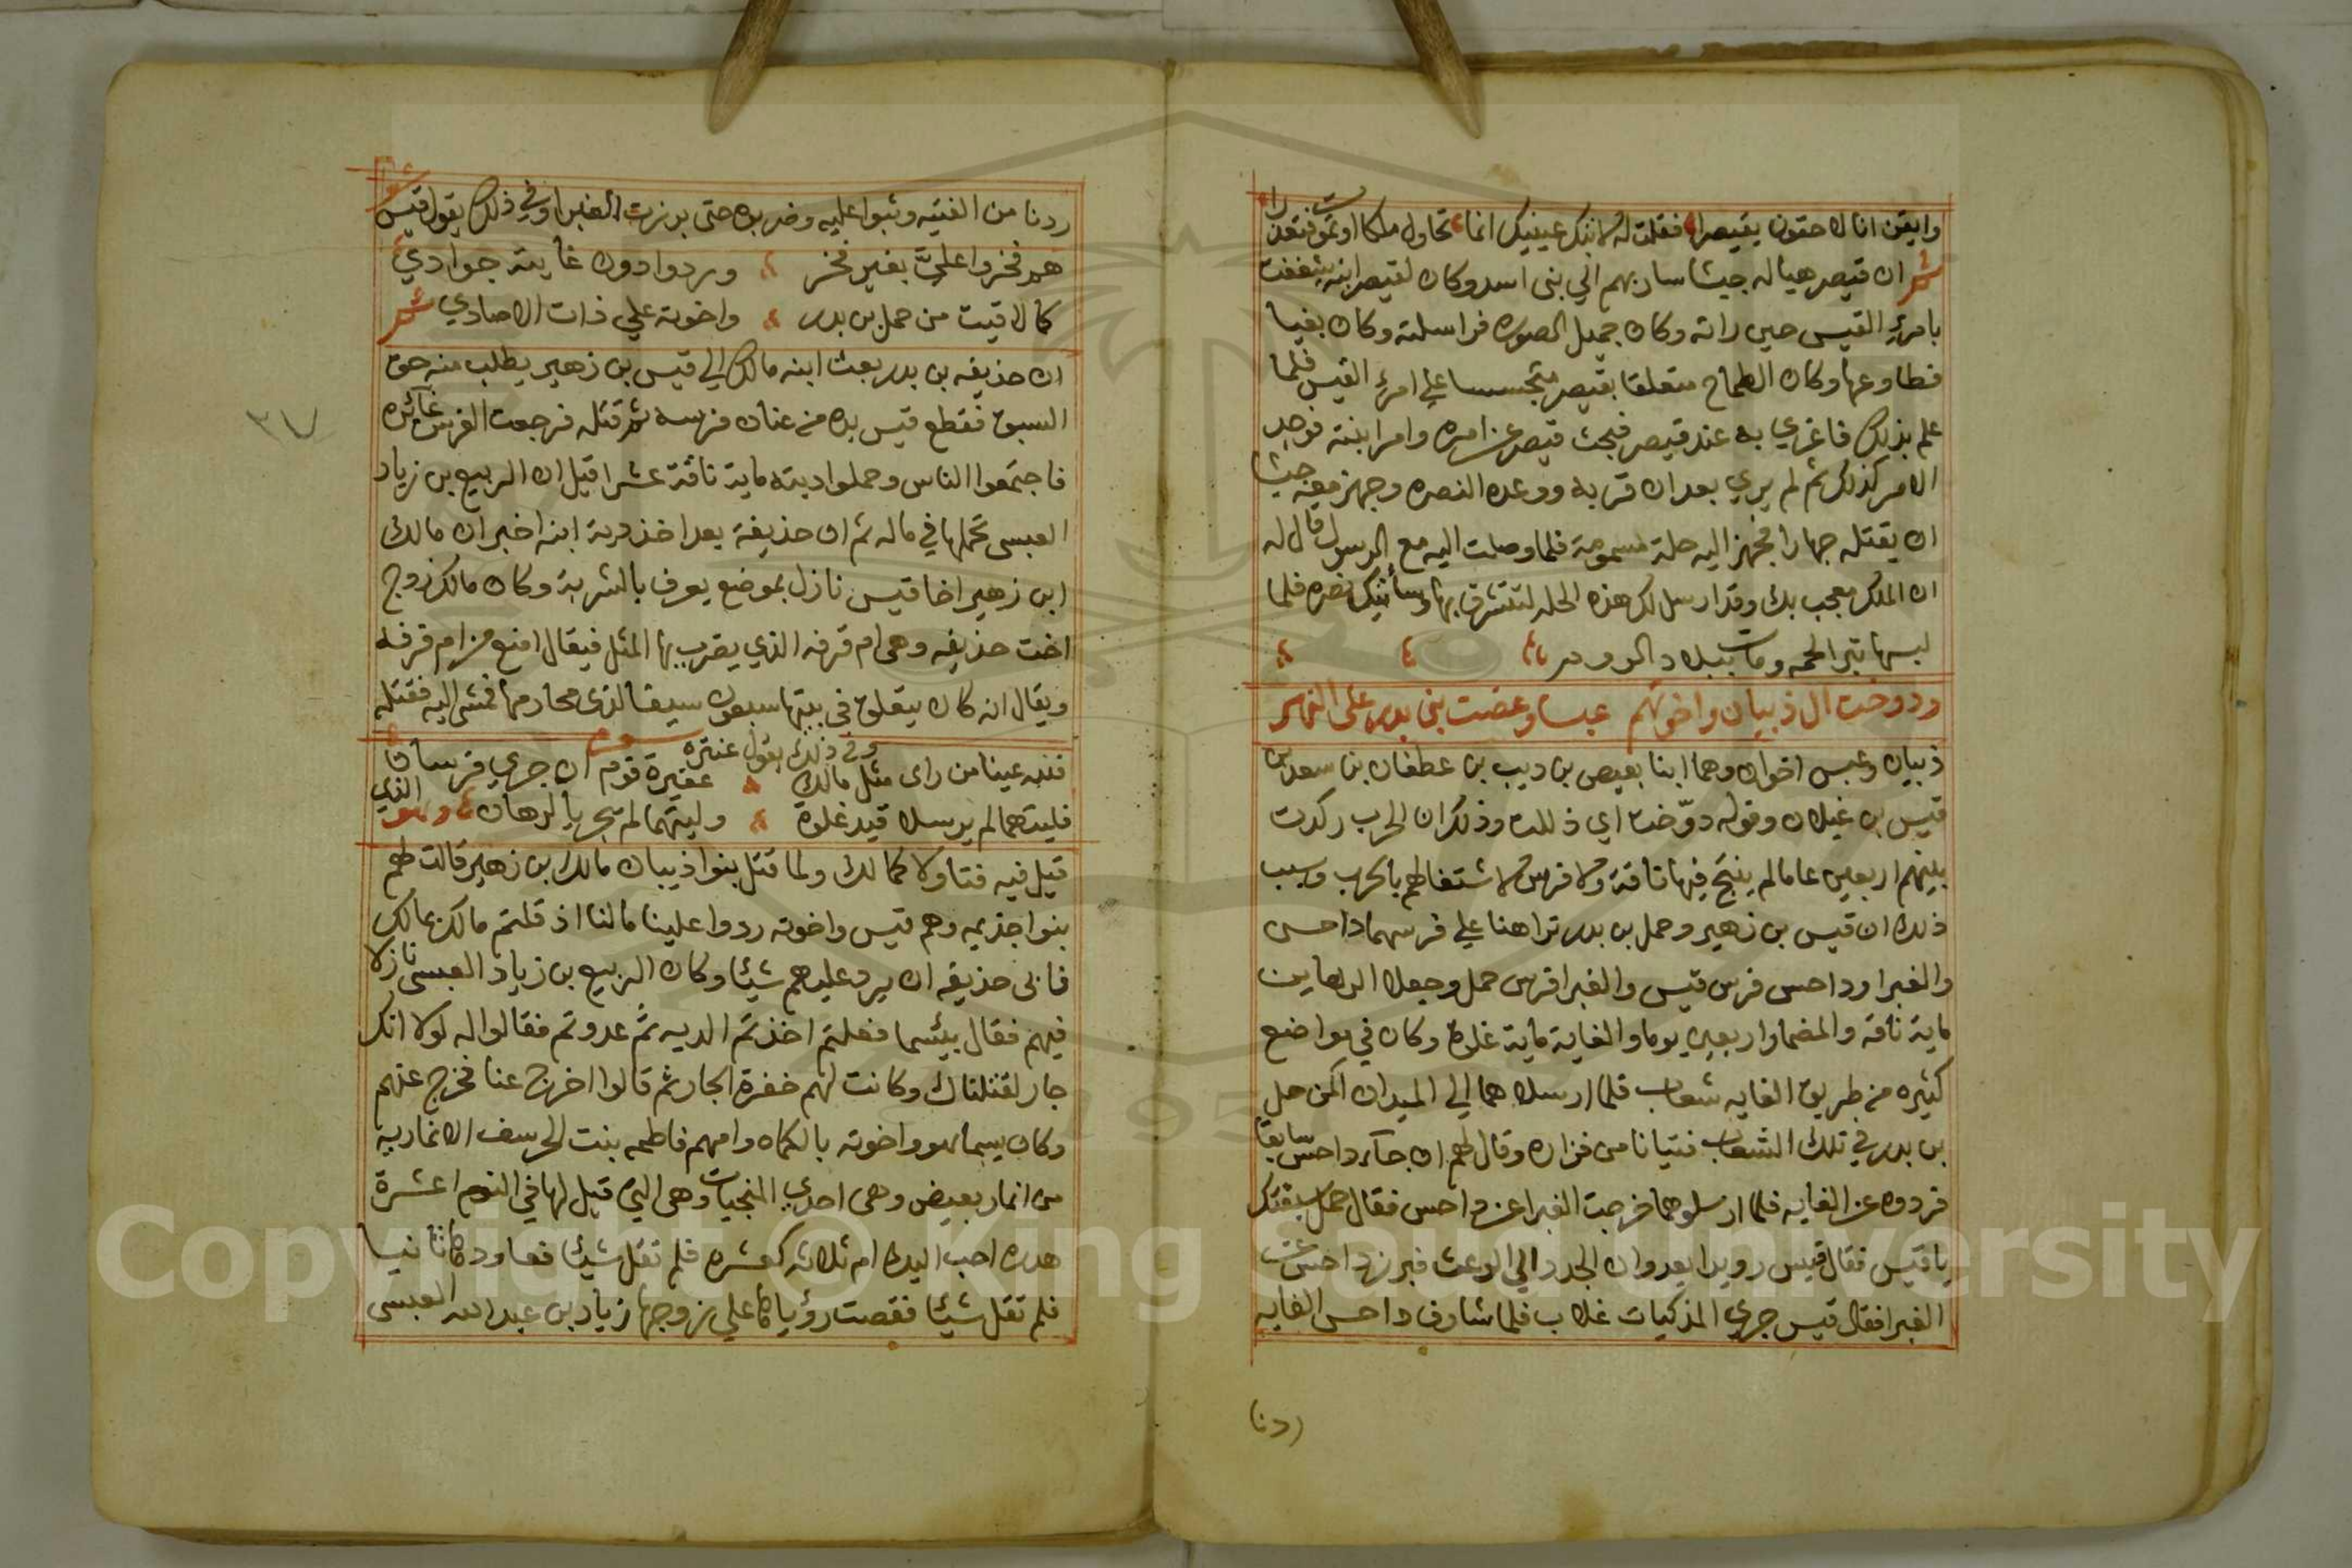 وايقن انا لاحقون بقيصرا فقلت له لا تبك عينيك انما نحاول ملكا او نموت فنعذرا
ثم ان قيصر هيا له جيشا سار بهم الي بني اسد وكان لقيصر ابنه شغفت
بامرئ القيس حين راته وكان جميل الصوره فراسلته وكان بغيا
فطاوعها وكان الطماح متعلقا بقيصر متجسسا علي امرئ القيس فلما
علم بذلك فاغري به عند قيصر فبحث قيصر عن امره وامر ابنته فوجد
الامر كذلك ثم لم يري بعد ان قربه ووعده النصره وجهز معه جيشا
ان يقتله جهارا فجهز اليه حلة مسمومة فلما وصلت اليه مع الرسول قال له
ان الملك معجب بك وقد ارسل لك هذه الحله لتتشرف بها وسأتيك نصره فلما
لبسها تبرا لحمه ومات ببلاد الروم
ودوخت ال ذبيان واخوتهم عبسا وعضت بني بدر على النهر
ذبيان وعبس اخوان وهما ابنا بغيص بن ديب بن عطفان بن سعد بن
قيس بن غيلان وقوله دوّخت اي ذللت وذلك ان الحرب ركدت
بينهم اربعين عاما لم ينتج فيها ناقة ولا فرس لاشتغالهم بالحرب وسبب
ذلك ان قيس بن زهير وحمل بن بدر تراهنا علي فرسهما داحس
والغبرا وداحس فرس قيس والغبرا فرس حمل وجعلا الرهاين
ماية ناقه والمضمار اربعين يوما والغاية ماية غلوة وكان في مواضع
كثيره من طريق الغايه شعاب فلما ارسلاهما الي الميدان اكمن حمل
بن بدر في تلك الشعاب فتيانا من فزاره وقال لهم ان جاء داحس سابقا
فردوه عن الغايه فلما ارسلوهما خرجت الغبرا عن داحس فقال حمل سبقتك
يا قيس فقال قيس رويدا يعدوان الجدد الي الوعث فبرز داحس عن
الغبرا فقال قيس جري المذكيات غلاب فلما شارف داحس الغايه
ردنا
ردنا من الفتيه وثبوا عليه وضربوه حتى برزت الغبرا وفي ذلك يقول قيس
هم فخروا عليّ بغير فخر وردوا دون غايته جوادي
كما لاقيت من حمل بن بدر واخوته علي ذات الاصادي ثم
ان حذيفه بن بدر بعث ابنه مالك الي قيس بن زهير يطلب منه حق
السبق فقطع قيس يده من عنان فرسه ثم قتله فرجعت الفرس غائره
٣٧
فاجتمعوا الناس وحملوا ديته ماية ناقة عشرا قيل ان الربيع بن زياد
العبسي تحملها في ماله ثم ان حذيفة بعد اخذ دية ابنه اخبر ان مالك
ابن زهير اخا قيس نازل بموضع يعرف بالشربة وكان مالك زوج
اخت حذيفه وهي ام قرفه الذي يضرب بها المثل فيقال امنع من ام قرفه
ويقال انه كان يتعلق في بيتها سبعون سيفا لذي محارمها فمشى اليه فقتله
وفي ذلك يقول عنتره
فلله عينا من راى مثل مالك عقيرة قوم ان جري فرسان
فليتهما لم يرسلا قيد غلوة وليتهما لم تجر يا لرهان وهو الذي
قيل فيه فتا ولا كمالك ولما قتل بنوا ذيبان مالك بن زهير قالت لهم
بنوا جذيمه وهم قيس واخوته ردوا علينا مالنا اذ قلتم مالك بمالك
فابى حذيفه ان يرد عليهم شيئا وكان الربيع بن زياد العبسى نازلا
فيهم فقال بيئسما فعلتم اخذتم الديه ثم عدوتم فقالوا له لولا انك
جار لقتلناك وكانت لهم خفرة الجار ثم قالوا اخرج عنا فخرج عنهم
وكان يسما هو واخوته بالكماه وامهم فاطمه بنت الحرسف الانماريه
من انمار بغيض وهي احدي المنجيات وهي التي قيل لها في النوم اعشرة
هدره احب اليك ام ثلاثه كعشره فلم تقل شيئا فعاودها ثانيا
فلم تقل شيئا فقصت رؤياها علي زوجها زياد بن عبد الله العبسى